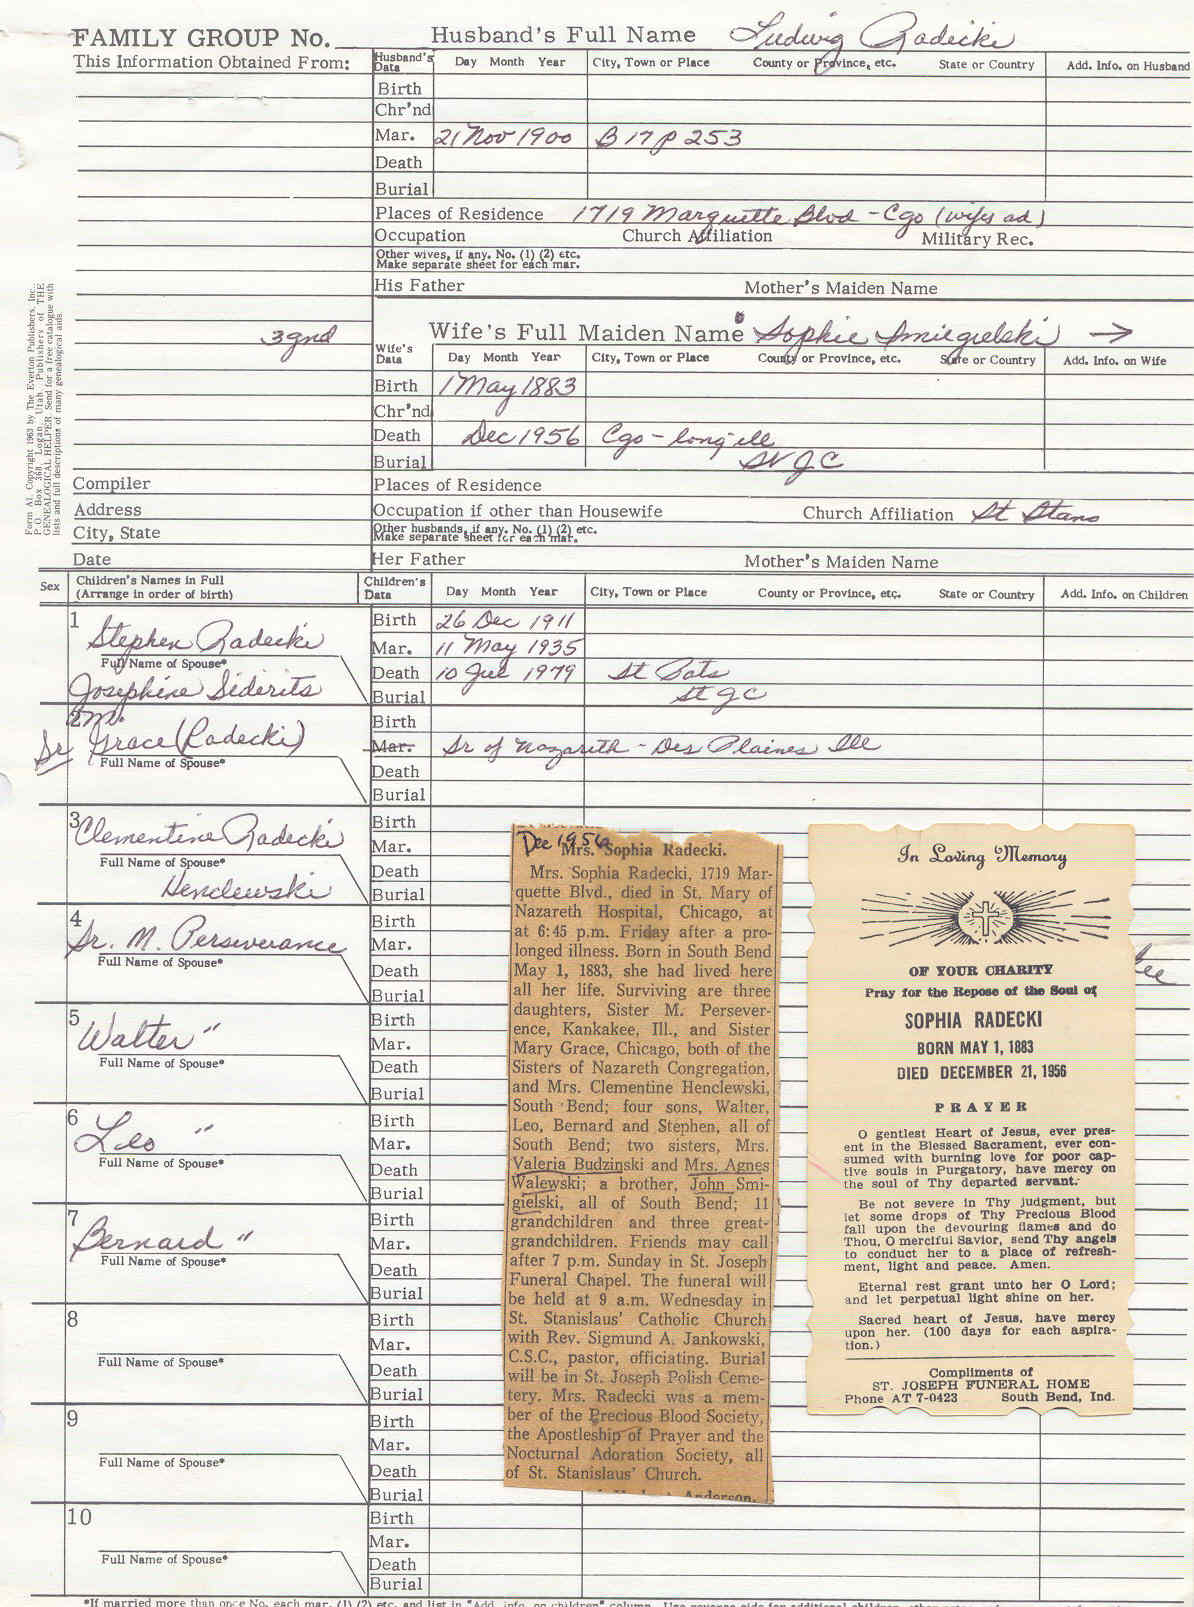 FAMILY GROUP No.
Husband's Full Name Ludwig Radecki
This Information Obtained From:
Husband's Data Day Month Year City, Town or Place County or Province, etc. State or Country Add. Info. on Husband
Birth
Chr'nd
Mar. 21 Nov 1900 B 17 p 253
Death
Burial
Places of Residence 1719 Marquette Blvd - Cgo (wifes ad)
Occupation Church Affiliation Military Rec.
Other wives, if any. No. (1) (2) etc.
Make separate sheet for each mar.
His Father Mother's Maiden Name
3gnd
Wife's Full Maiden Name Sophie Smiegielski →
Wife's Data Day Month Year City, Town or Place County or Province, etc. State or Country Add. Info. on Wife
Birth 1 May 1883
Chr'nd
Death Dec 1956 Cgo - long ill
Burial St J C
Form A1. Copyright 1963 by The Everton Publishers, Inc.,
P.O. Box 368, Logan, Utah. Publishers of THE
GENEALOGICAL HELPER. Send for a free catalogue with
lists and full descriptions of many genealogical aids.
Compiler Places of Residence
Address Occupation if other than Housewife Church Affiliation St Stans
City, State Other husbands, if any. No. (1) (2) etc.
Make separate sheet for each mar.
Date Her Father Mother's Maiden Name
Sex Children's Names in Full
(Arrange in order of birth)
Children's Data Day Month Year City, Town or Place County or Province, etc. State or Country Add. Info. on Children
1 Stephen Radecki
Full Name of Spouse*
Josephine Siderits
Birth 26 Dec 1911
Mar. 11 May 1935
Death 10 Jul 1979 St Pats
Burial St J C
2 Sr M. Grace (Radecki)
Full Name of Spouse*
Birth
Mar. Sr of Nazarith - Des Plaines Ill
Death
Burial
3 Clementine Radecki
Full Name of Spouse*
Henclewski
Birth
Mar.
Death
Burial
4 Sr. M. Perseverance
Full Name of Spouse*
Birth
Mar.
Death
Burial
5 Walter "
Full Name of Spouse*
Birth
Mar.
Death
Burial
6 Leo "
Full Name of Spouse*
Birth
Mar.
Death
Burial
7 Bernard "
Full Name of Spouse*
Birth
Mar.
Death
Burial
8
Full Name of Spouse*
Birth
Mar.
Death
Burial
9
Full Name of Spouse*
Birth
Mar.
Death
Burial
10
Full Name of Spouse*
Birth
Mar.
Death
Burial
Dec 1956
Mrs. Sophia Radecki.
Mrs. Sophia Radecki, 1719 Mar-
quette Blvd., died in St. Mary of
Nazareth Hospital, Chicago, at
at 6:45 p.m. Friday after a pro-
longed illness. Born in South Bend
May 1, 1883, she had lived here
all her life. Surviving are three
daughters, Sister M. Persever-
ence, Kankakee, Ill., and Sister
Mary Grace, Chicago, both of the
Sisters of Nazareth Congregation,
and Mrs. Clementine Henclewski,
South Bend; four sons, Walter,
Leo, Bernard and Stephen, all of
South Bend; two sisters, Mrs.
Valeria Budzinski and Mrs. Agnes
Walewski; a brother, John Smi-
gielski, all of South Bend; 11
grandchildren and three great-
grandchildren. Friends may call
after 7 p.m. Sunday in St. Joseph
Funeral Chapel. The funeral will
be held at 9 a.m. Wednesday in
St. Stanislaus' Catholic Church
with Rev. Sigmund A. Jankowski,
C.S.C., pastor, officiating. Burial
will be in St. Joseph Polish Ceme-
tery. Mrs. Radecki was a mem-
ber of the Precious Blood Society,
the Apostleship of Prayer and the
Nocturnal Adoration Society, all
of St. Stanislaus' Church.
Anderson.
In Loving Memory
OF YOUR CHARITY
Pray for the Repose of the Soul of
SOPHIA RADECKI
BORN MAY 1, 1883
DIED DECEMBER 21, 1956
PRAYER
O gentlest Heart of Jesus, ever pres-
ent in the Blessed Sacrament, ever con-
sumed with burning love for poor cap-
tive souls in Purgatory, have mercy on
the soul of Thy departed servant.
Be not severe in Thy judgment, but
let some drops of Thy Precious Blood
fall upon the devouring flames and do
Thou, O merciful Savior, send Thy angels
to conduct her to a place of refresh-
ment, light and peace. Amen.
Eternal rest grant unto her O Lord;
and let perpetual light shine on her.
Sacred heart of Jesus, have mercy
upon her. (100 days for each aspira-
tion.)
Compliments of
ST. JOSEPH FUNERAL HOME
Phone AT 7-0423 South Bend, Ind.
*If married more than once No. each mar. (1) (2) etc. and list in "Add. info. on children" column. Use reverse side for additional children, other notes,